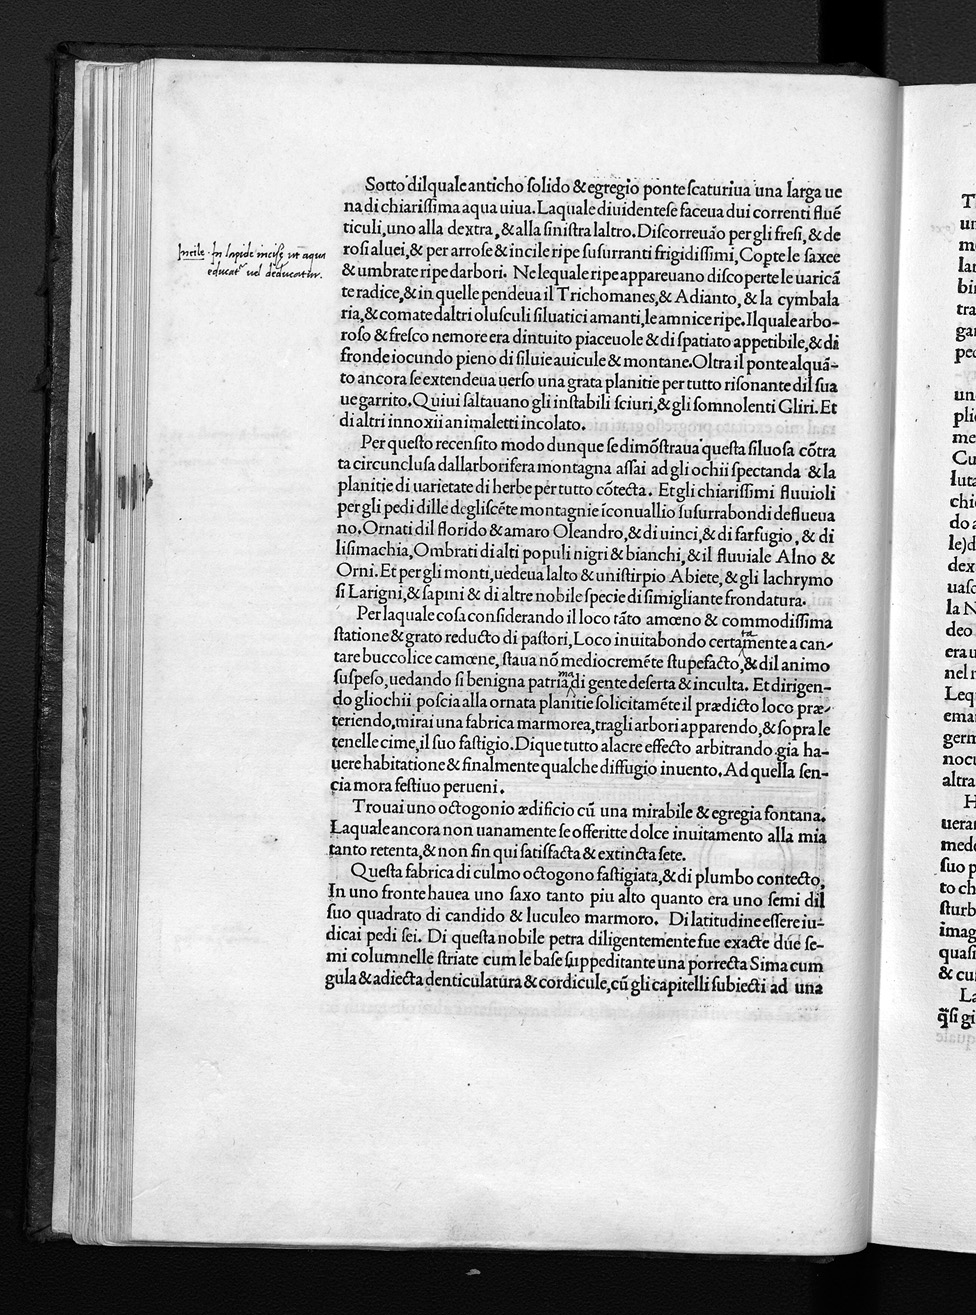 Sotto dilquale anticho ſolido & egregio ponte ſcaturiua una larga ue
na di chiariſſima aqua uiua. Laquale diuidenteſe faceua dui correnti fluē
ticuli, uno alla dextra, & alla ſiniſtra laltro. Diſcorreuāo per gli freſi, & de
roſi aluei, & per arroſe & incile ripe ſuſurranti frigidiſſimi, Copte le ſaxee
& umbrate ripe darbori. Ne lequale ripe appareuano diſcoperte le uaricā
te radice, & in quelle pendeua il Trichomanes, & Adianto, & la cymbala
ria, & comate daltri oluſculi ſiluatici amanti, le amnice ripe. Ilquale arbo-
roſo & freſco nemore era dintuito piaceuole & di ſpatiato appetibile, & di
fronde iocundo pieno di ſiluie auicule & montane. Oltra il ponte alquā-
to ancora ſe extendeua uerſo una grata planitie per tutto riſonante dil ſua
ue garrito. Quiui ſaltauano gli inſtabili ſciuri, & gli ſomnolenti Gliri. Et
di altri innoxii animaletti incolato.
Per queſto recenſito modo dunque ſe dimōſtraua queſta ſiluoſa cōtra
ta circuncluſa dall arborifera montagna aſſai ad gli ochii ſpectanda & la
planitie di uarietate di herbe per tutto cōtecta. Et gli chiariſſimi fluuioli
per gli pedi dille degliſcēte montagnie iconuallio ſuſurrabondi deflueua
no. Ornati dil florido & amaro Oleandro, & di uinci, & di farfugio, & di
liſimachia, Ombrati di alti populi nigri & bianchi, & il fluuiale Alno &
Orni. Et per gli monti, uedeua lalto & uniſtirpio Abiete, & gli lachrymo
ſi Larigni, & ſapini & di altre nobile ſpecie di ſimigliante frondatura.
Per laquale coſa conſiderando il loco tāto amœno & commodiſſima
ſtatione & grato reducto di paſtori, Loco inuitabondo certamente a can-
ta
tare buccolice camœne, ſtaua nō mediocremēte ſtupefacto, & dil animo
ſuſpeſo, uedando ſi benigna patria di gente deſerta & inculta. Et dirigen-
ma
do gliochii poſcia alla ornata planitie ſolicitamēte il prædicto loco præ-
teriendo, mirai una fabrica marmorea, tra gli arbori apparendo, & ſopra le
tenelle cime, il ſuo faſtigio. Dique tutto alacre effecto arbitrando gia ha-
uere habitatione & finalmente qualche diffugio inuento. Ad quella ſen-
cia mora feſtiuo perueni.
Trouai uno octogonio ædificio cū una mirabile & egregia fontana.
Laquale ancora non uanamente ſe offeritte dolce inuitamento alla mia
tanto retenta, & non ſin qui ſatiſfacta & extincta ſete.
Queſta fabrica di culmo octogono faſtigiata, & di plumbo contecto,
In uno fronte hauea uno ſaxo tanto piu alto quanto era uno ſemi dil
ſuo quadrato di candido & luculeo marmoro. Di latitudine eſſere iu-
dicai pedi ſei. Di queſta nobile petra diligentemente fue exacte due ſe-
mi columnelle ſtriate cum le baſe ſuppeditante una porrecta Sima cum
gula & adiecta denticulatura & cordicule, cū gli capitelli ſubiecti ad una
Incile. In lapide inciſe ut aqua
educat^r vel deducatur.